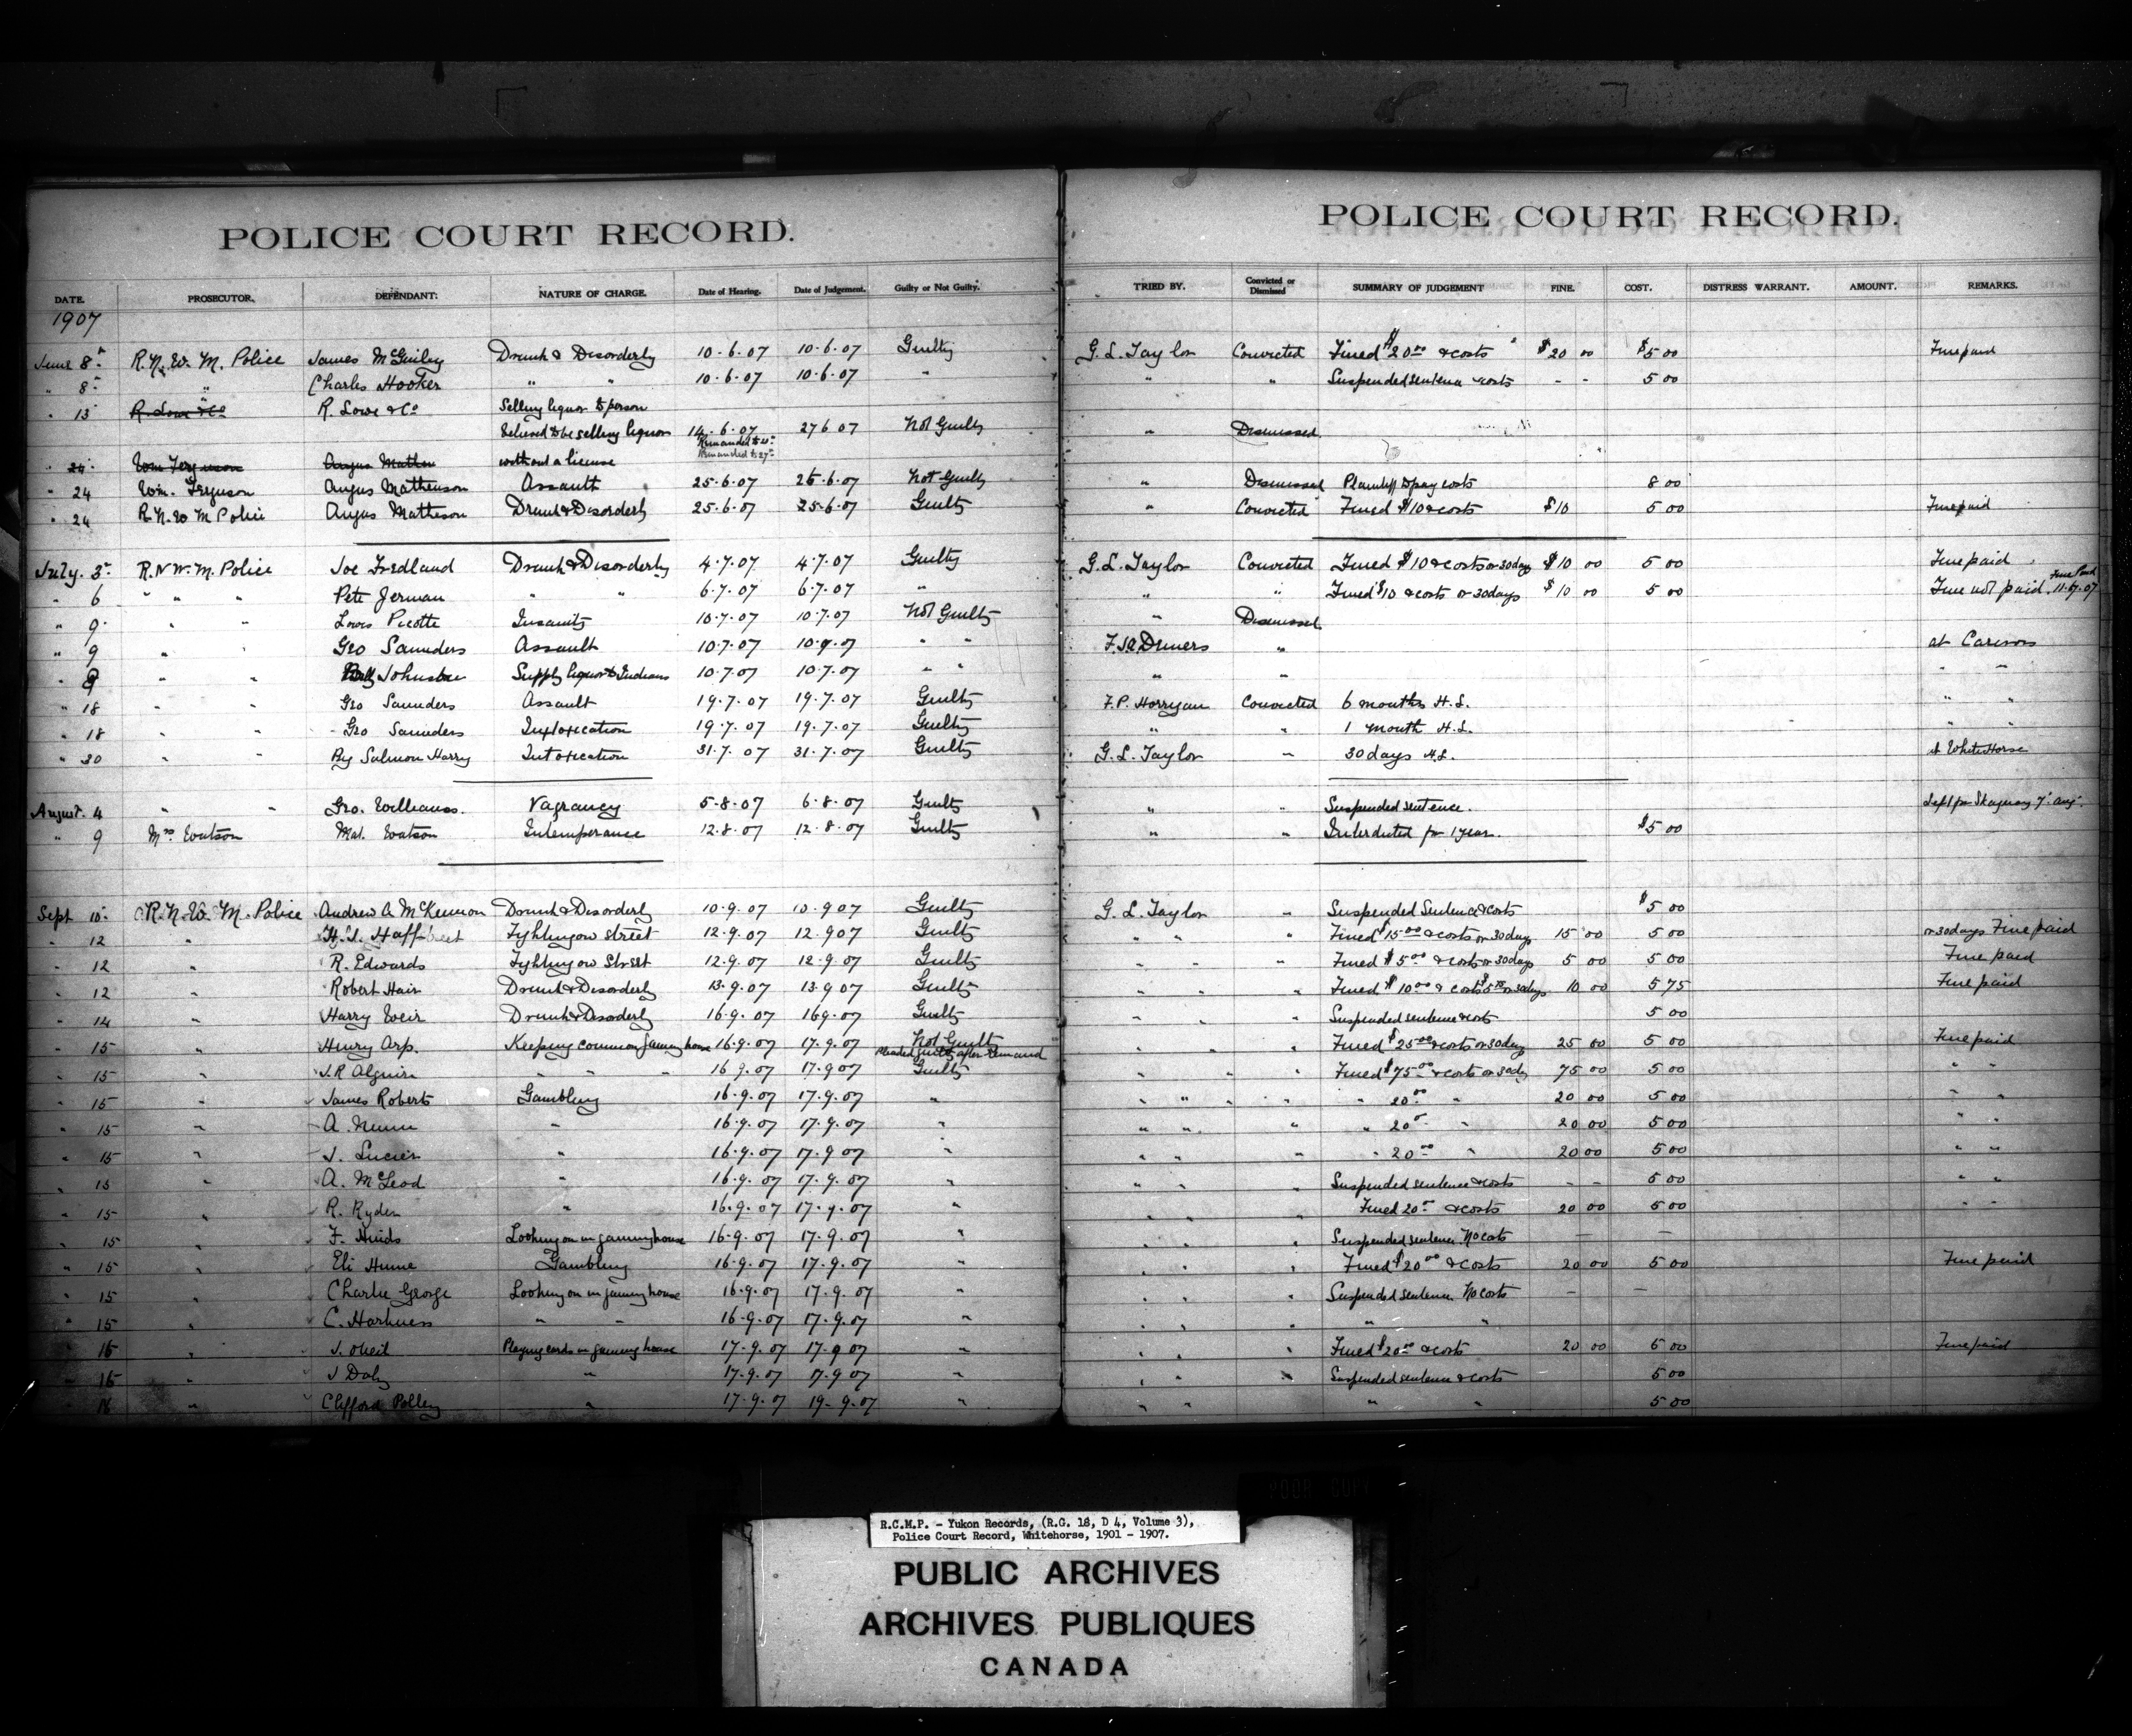 POLICE COURT RECORD.
DATE. PROSECUTOR. DEFENDANT: NATURE OF CHARGE. Date of Hearing. Date of Judgement. Guilty or Not Guilty.
1907
June 8 R.N.W.M. Police James McGuiley Drunk & Disorderly 10-6-07 10-6-07 Guilty
" 8 " Charles Hooker " " 10-6-07 10-6-07 "
" 13 R. Lowe & Co R. Lowe & Co Selling liquor to person
believed to be selling liquor 14-6-07 27 6 07 Not Guilty
Remanded to
Remanded to 27
" 24 Wm Ferguson Angus Mathew without a license
" 24 Wm. Ferguson Angus Matheuson Assault 25-6-07 25-6-07 Not Guilty
" 24 R.N.W M Police Angus Matheson Drunk & Disorderly 25-6-07 25-6-07 Guilty
July. 3 R.N.W.M. Police Joe Fredland Drunk & Disorderly 4-7-07 4-7-07 Guilty
" 6 " " " Pete Jerman " " 6-7-07 6-7-07 "
" 9 " " Louis Picotte Insanity 10-7-07 10-7-07 Not Guilty
" 9 " " Geo Saunders Assault 10-7-07 " "
" 9 " " Johnston Supply liquor to Indians 10-7-07 10-7-07 " "
" 18 " " Geo Saunders Assault 19-7-07 19-7-07 Guilty
" 18 " " Geo Saunders Intoxication 19-7-07 19-7-07 Guilty
" 30 " " Big Salmon Harry Intoxication 31-7-07 31-7-07 Guilty
August. 4 " " Geo. Williams. Vagrancy 5-8-07 6-8-07 Guilty
" 9 Mrs Watson Mat. Watson Intemperance 12-8-07 12-8-07 Guilty
Sept 10 R.N.W.M. Police Andrew A McKennon Drunk & Disorderly 10-9-07 10-9 07 Guilty
" 12 " Fighting on street 12-9-07 12-9 07 Guilty
" 12 " R. Edwards Fighting on Street 12-9-07 12-9-07 Guilty
" 12 " Robert Hair Drunk & Disorderly 13-9-07 13-9 07 Guilty
" 14 " Harry Weir Drunk & Disorderly 16-9-07 16 9-07 Guilty
" 15 " Henry Arp. Keeping common gaming house 16-9-07 17-9-07 Not Guilty
pleaded guilty after remand
" 15 " J.R Alguire " " " 16 9-07 17-9 07 Guilty
" 15 " James Roberts Gambling 16-9-07 17-9-07 "
" 15 " A. Nunn " 16-9-07 17-9-07 "
" 15 " J. Lucier " 16-9-07 17-9 07 "
" 15 " A. McLeod " 16-9-07 17-9-07 "
" 15 " R. Ryder " 16-9-07 17-9-07 "
" 15 " F. Hinds Looking on in gaming house 16-9-07 17-9-07 "
" 15 " Eli Hume Gambling 16-9-07 17-9-07 "
" 15 " Charlie George Looking on in gaming house 16-9-07 17-9-07 "
" 15 " C. Harkness " " 16-9-07 17-9-07 "
" 16 " J. Oneil Playing cards in gaming house 17-9-07 17-9 07 "
" 16 " J Daly " 17-9-07 17-9 07 "
" 16 " Clifford Polley " 17-9-07 19-9-07 "
POLICE COURT RECORD.
TRIED BY. Convicted or Dismissed SUMMARY OF JUDGEMENT FINE. COST. DISTRESS WARRANT. AMOUNT. REMARKS.
G.L. Taylor Convicted Fined $20.00 & costs $20 00 $5 00 Fine paid
" " Suspended sentence & costs - - 5 00
" Dismissed
" Dismissed Plaintiff to pay costs 8 00
" Convicted Fined $10 & costs $10 5 00 Fine paid
G.L. Taylor Convicted Fined $10 & costs or 30 days $10 00 5 00 Fine paid
" " Fined $10 & costs or 30 days $10 00 5 00 Fine not paid. Fine Paid 11-7-07
" Dismissed
" at Carcross
" " " "
F.P. Horrigan Convicted 6 months H.L. " "
" " 1 month H.L. " "
G.L. Taylor " 30 days H.L. at White Horse
" " Suspended sentence. Left for Skagway 7 Aug.
" " Interdicted for 1 year. $5 00
G.L. Taylor " Suspended Sentence & costs $5 00
" " " Fined $15.00 & costs or 30 days 15 00 5 00 or 30 days Fine paid
" " " Fined $5.00 & costs or 30 days 5 00 5 00 Fine paid
" " " Fined $10.00 & costs $5.75 or 30 days 10 00 5 75 Fine paid
" " " Suspended sentence & costs 5 00
" " " Fined $25.00 & costs or 30 days 25 00 5 00 Fine paid
" " " Fined $75.00 & costs or 30 dys 75 00 5 00 " "
" " " " 20.00 " 20 00 5 00 " "
" " " " 20 " 20 00 5 00 " "
" " " " 20.00 " 20 00 5 00 " "
" " " Suspended sentence & costs - - 5 00 " "
" " " Fined 20 & costs 20 00 5 00 " "
" " " Suspended sentence No costs — —
" " " Fined $20.00 & costs 20 00 5 00 Fine paid
" " " Suspended sentence No costs — —
" " " " "
" " " Fined $20.00 & costs 20 00 5 00 Fine paid
" " " Suspended sentence & costs 5 00
" " " " 5 00
R.C.M.P. - Yukon Records, (R.G. 18, D 4, Volume 3),
Police Court Record, Whitehorse, 1901 - 1907.
PUBLIC ARCHIVES
ARCHIVES PUBLIQUES
CANADA